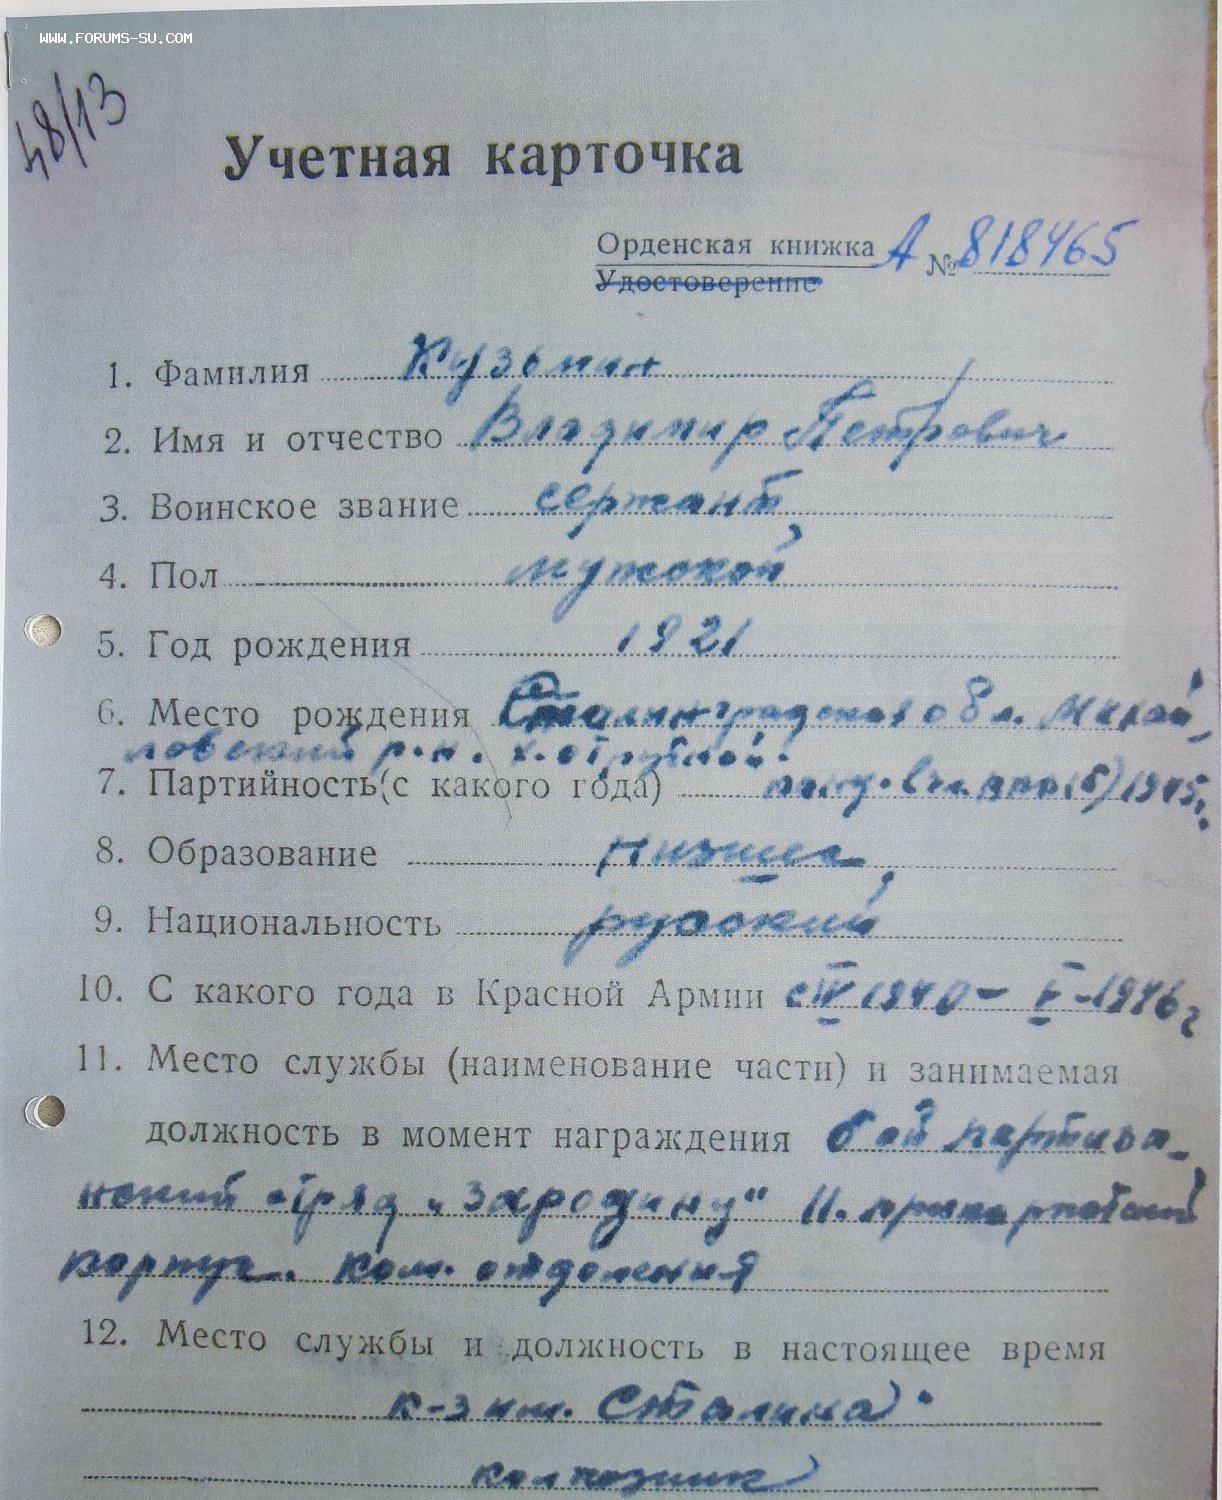 WWW.FORUMS-SU.COM
48/13
Учетная карточка
Орденская книжка А № 818465
Удостоверение
1. Фамилия Кузьмин
2. Имя и отчество Владимир Петрович
3. Воинское звание сержант
4. Пол мужской
5. Год рождения 1921
6. Место рождения Сталинградская обл. Михай
ловский р-н. х. отрубной.
7. Партийность(с какого года) канд. в чл. ВКП(б) 1945г.
8. Образование низшее
9. Национальность русский
10. С какого года в Красной Армии с IV 1940 – V – 1946 г
11. Место службы (наименование части) и занимаемая
должность в момент награждения партиза-
нский отряд „За родину“ прикарпатский
корпус. ком. отделения
12. Место службы и должность в настоящее время
к-з им. Сталина
колхозник